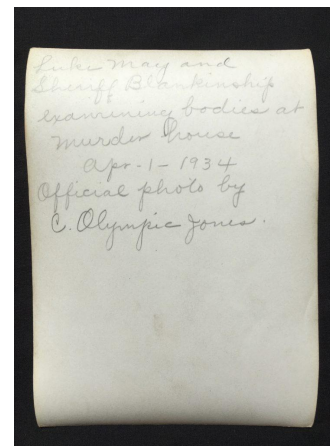 Luke May and
Sheriff Blankinship
examining bodies at
murder house
Apr-1-1934
Official photo by
C. Olympic Jones.